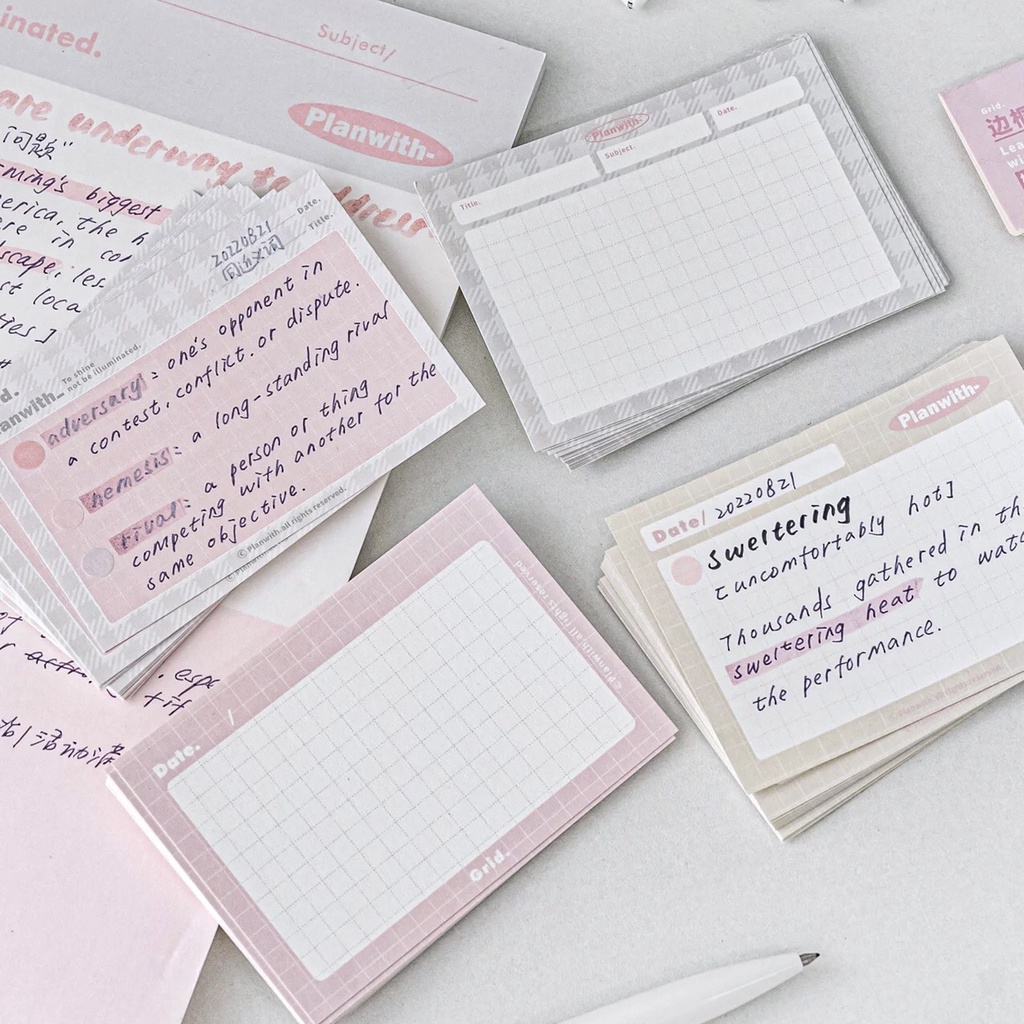 inated.
Subject/
Planwith-
are underway to address
"问题"
ming's biggest
erica, the h
ere in co
scape, les
st loca
ties]
Date.
Title.
20220821
同近义词
To shine
not be illuminated.
anwith_
adversary: one's opponent in
a contest, conflict, or dispute.
nemesis: a long-standing rival
rival: a person or thing
competing with another for the
same objective.
© Planwith.all rights reserved.
Planwith-
Date.
Subject.
Title.
Grid.
边框
Lea
wi
Planwith-
Date/ 20220821
sweltering
[uncomfortably hot]
Thousands gathered in th
sweltering heat to watc
the performance.
© Planwith.all rights reserved
©Planwith.all rights reserved
Date.
/
Grid.
espe
活动